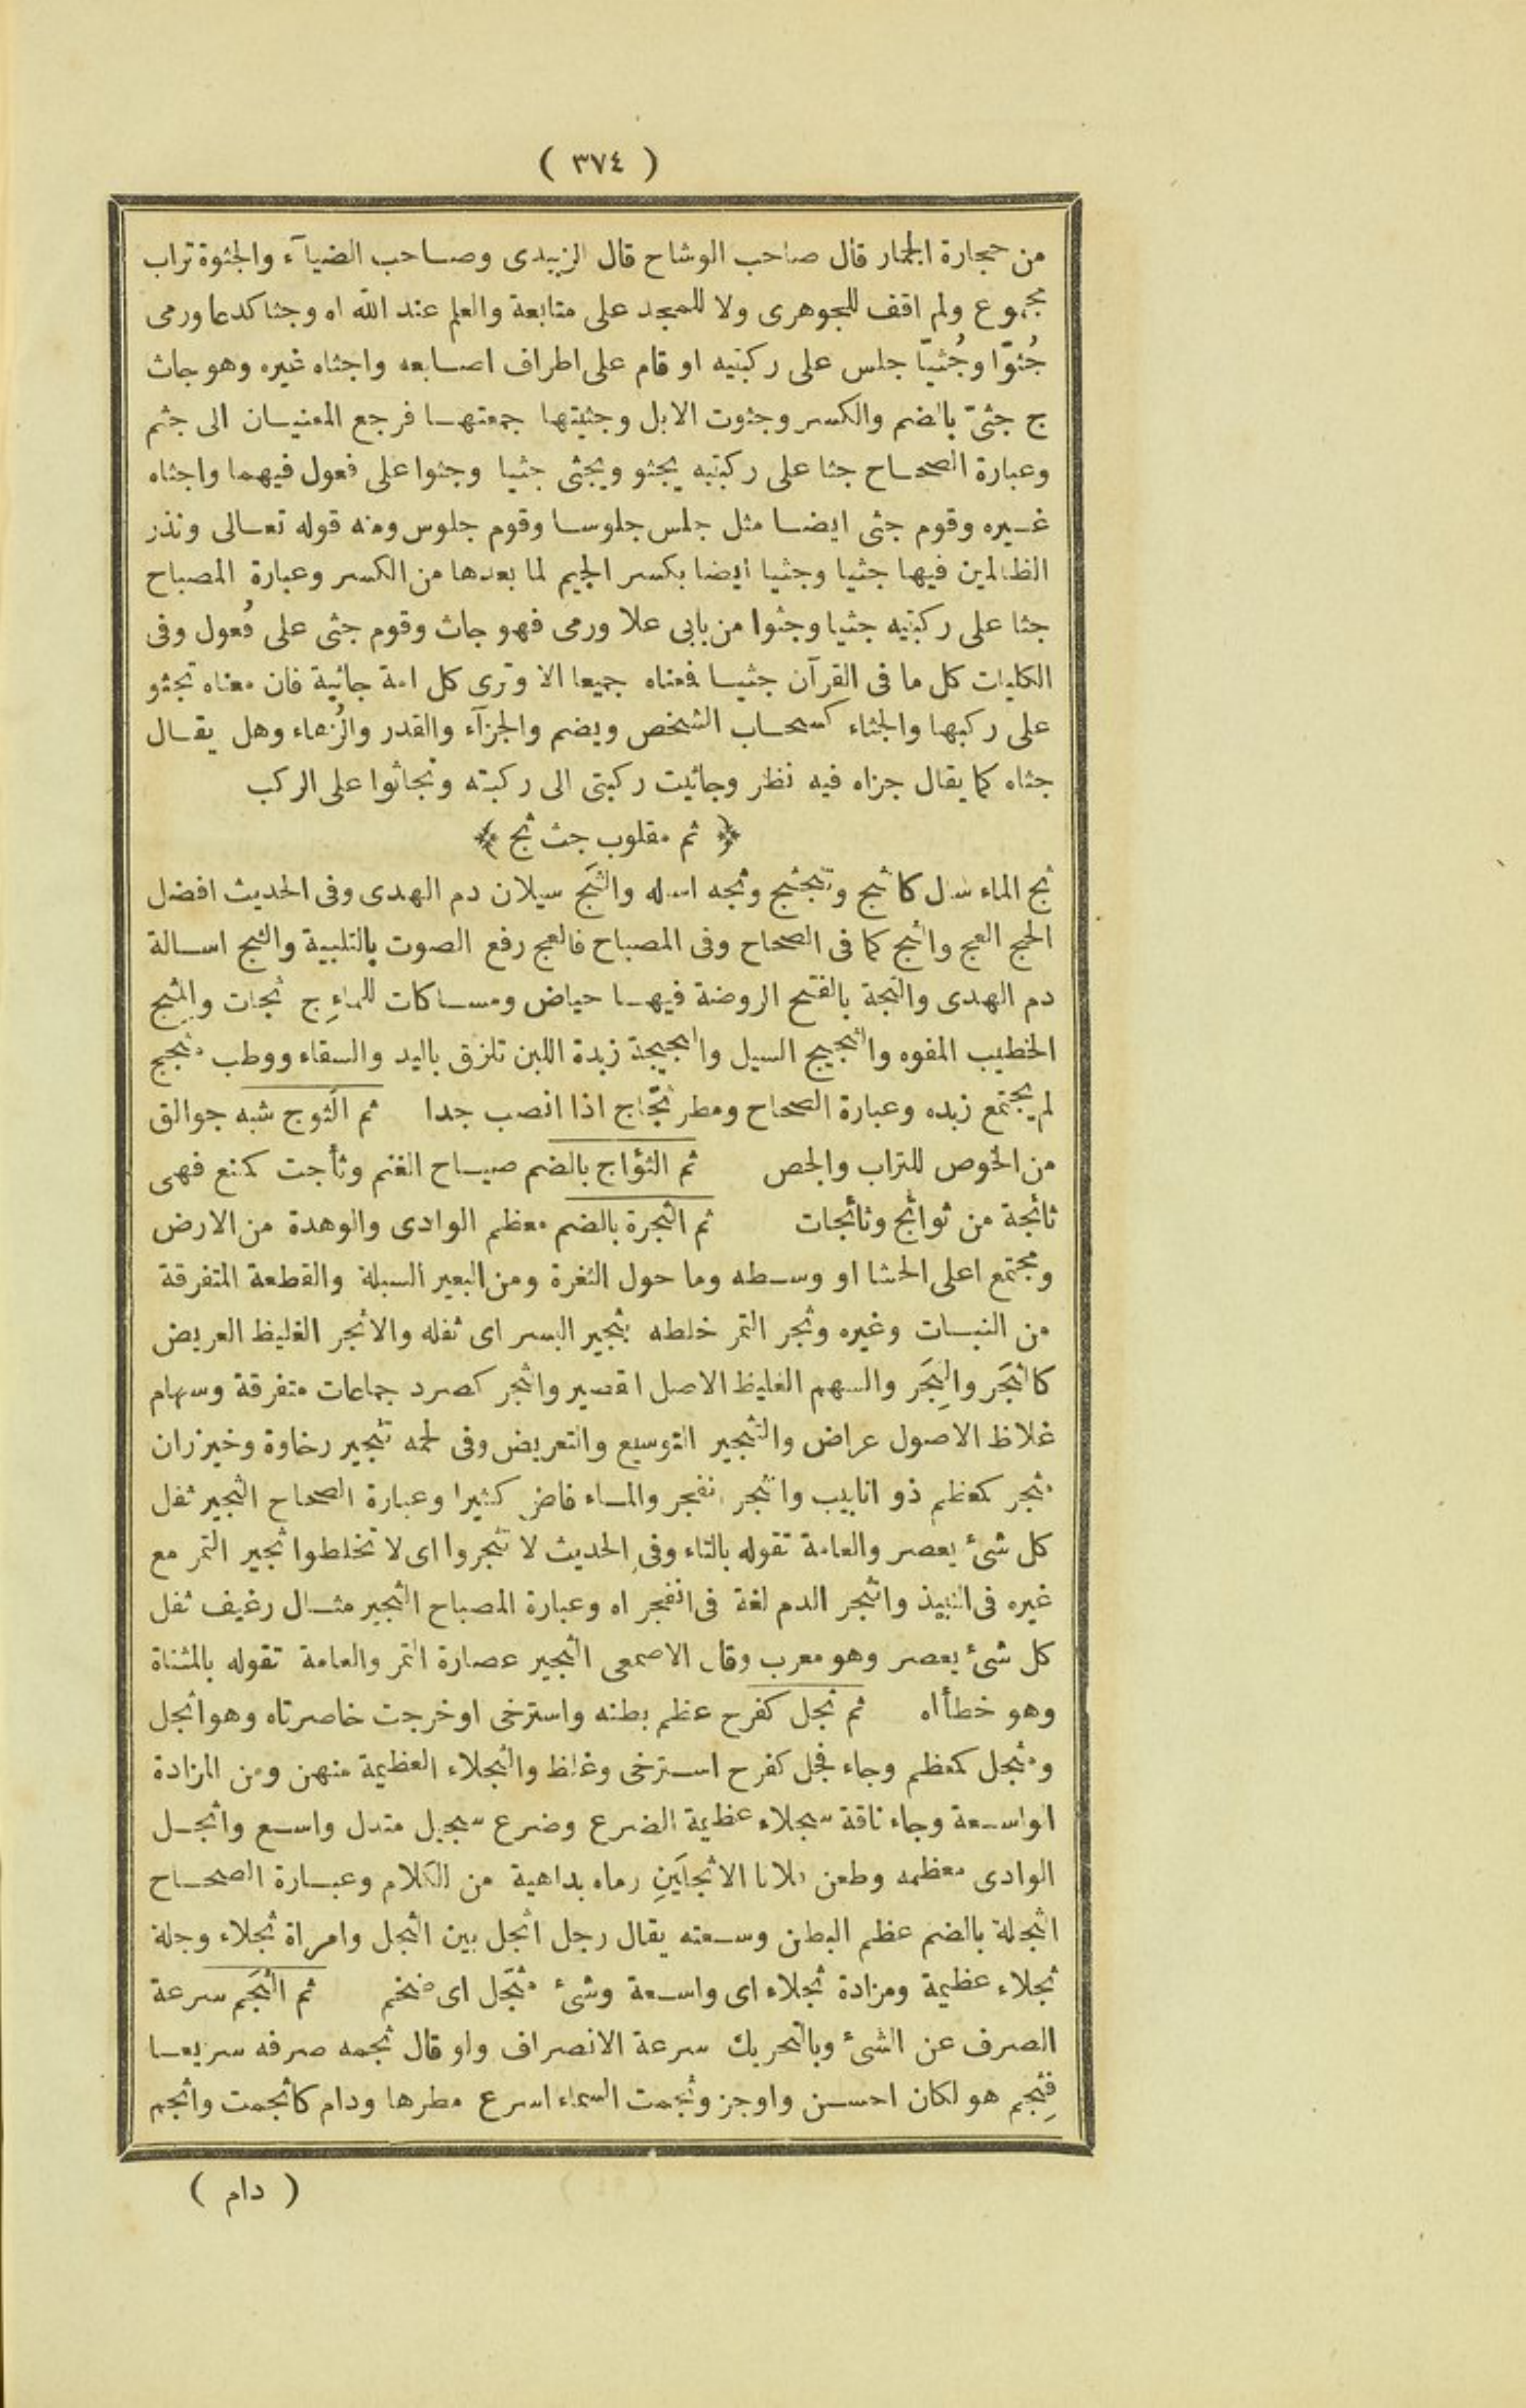 ( ٣٧٤ )
من حجارة الجمار قال صاحب الوشاح قال الزبيدى وصاحب الضيآء والجثوة تراب
مجموع ولم اقف للجوهرى ولا للمجد على متابعة والعلم عند الله اه وجثا كدعا ورمى
جُثوّا وجُثيّا جلس على ركبتيه او قام على اطراف اصابعه واجثاه غيره وهو جاث
ج جثىّ بالضم والكسر وجثوت الابل وجثيتها جمعتها فرجع المعنيان الى جثم
وعبارة الصحاح جثا على ركبتيه يجثو ويجثى جثيا وجثوا على فعول فيهما واجثاه
غيره وقوم جثى ايضا مثل جلس جلوسا وقوم جلوس ومنه قوله تعالى ونذر
الظالمين فيها جثيا وجثيا ايضا بكسر الجيم لما بعدها من الكسر وعبارة المصباح
جثا على ركبتيه جثيا وجثوا من بابى علا ورمى فهو جاث وقوم جثى على فُعول وفى
الكليات كل ما فى القرآن جثيا فمعناه جميعا الا وترى كل امة جاثية فان معناه تجثو
على ركبها والجثاء كسحاب الشخص ويضم والجزآء والقدر والزُهاء وهل يقال
جثاه كما يقال جزاه فيه نظر وجاثيت ركبتى الى ركبته وتجاثوا على الركب
﴿ ثم مقلوب جث ثج ﴾
ثج الماء سال كاثج وتثجثج وثجه اساله والثَج سيلان دم الهدى وفى الحديث افضل
الحج العج والثج كما فى الصحاح وفى المصباح فالعج رفع الصوت بالتلبية والثج اسالة
دم الهدى والثجة بالفتح الروضة فيها حياض ومساكات للماءِ ج ثجات والمِثج
الخطيب المفوه والثجيج السيل والثجيجة زبدة اللبن تلزق باليد والسقاء ووطب مثجج
لم يجتمع زبده وعبارة الصحاح ومطر ثجّاج اذا انصب جدا ثم الثوج شبه جوالق
من الخوص للتراب والجص ثم الثؤاج بالضم صياح الغنم وثأجت كمنع فهى
ثائجة من ثوائج وثائجات ثم الثجرة بالضم معظم الوادى والوهدة من الارض
ومجتمع اعلى الحشا او وسطه وما حول الثغرة ومن البعير السبلة والقطعة المتفرقة
من النبات وغيره وثجر التمر خلطه بثجير البسر اى ثفله والاثجر الغليظ العريض
كالثجَر والثجِر والسهم الغليظ الاصل القصير والثجر كصرد جماعات متفرقة وسهام
غلاظ الاصول عراض والتثجير التوسيع والتعريض وفى لحمه تثجير رخاوة وخيزران
مثجر كمعظم ذو انابيب وانثجر انفجر والماء فاض كثيرا وعبارة الصحاح الثجير ثفل
كل شئ يعصر والعامة تقوله بالتاء وفى الحديث لا تثجروا اى لا تخلطوا ثجير التمر مع
غيره فى النبيذ وانثجر الدم لغة فى انفجر اه وعبارة المصباح الثجير مثال رغيف ثفل
كل شئ يعصر وهو معرب وقال الاصمعى الثجير عصارة التمر والعامة تقوله بالمثناة
وهو خطأ اه ثم ثجل كفرح عظم بطنه واسترخى او خرجت خاصرتاه وهو اثجل
ومثجل كمعظم وجاء فجل كفرح استرخى وغلظ والثجلاء العظيمة منهن ومن المزادة
الواسعة وجاء ناقة سجلاء عظيمة الضرع وضرع سجيل متدل واسع واثجل
الوادى معظمه وطعن فلانا الاثجلَينِ رماه بداهية من الكلام وعبارة الصحاح
الثجلة بالضم عظم البطن وسعته يقال رجل اثجل بين الثجل وامراة ثجلاء وجلة
ثجلاء عظيمة ومزادة ثجلاء اى واسعة وشئ مثجّل اى ضخم ثم الثجَم سرعة
الصرف عن الشئ وبالتحريك سرعة الانصراف ولو قال ثجمه صرفه سريعا
فثجِم هو لكان احسن واوجز وثجمت السماء اسرع مطرها ودام كاثجمت واثجم
( دام )